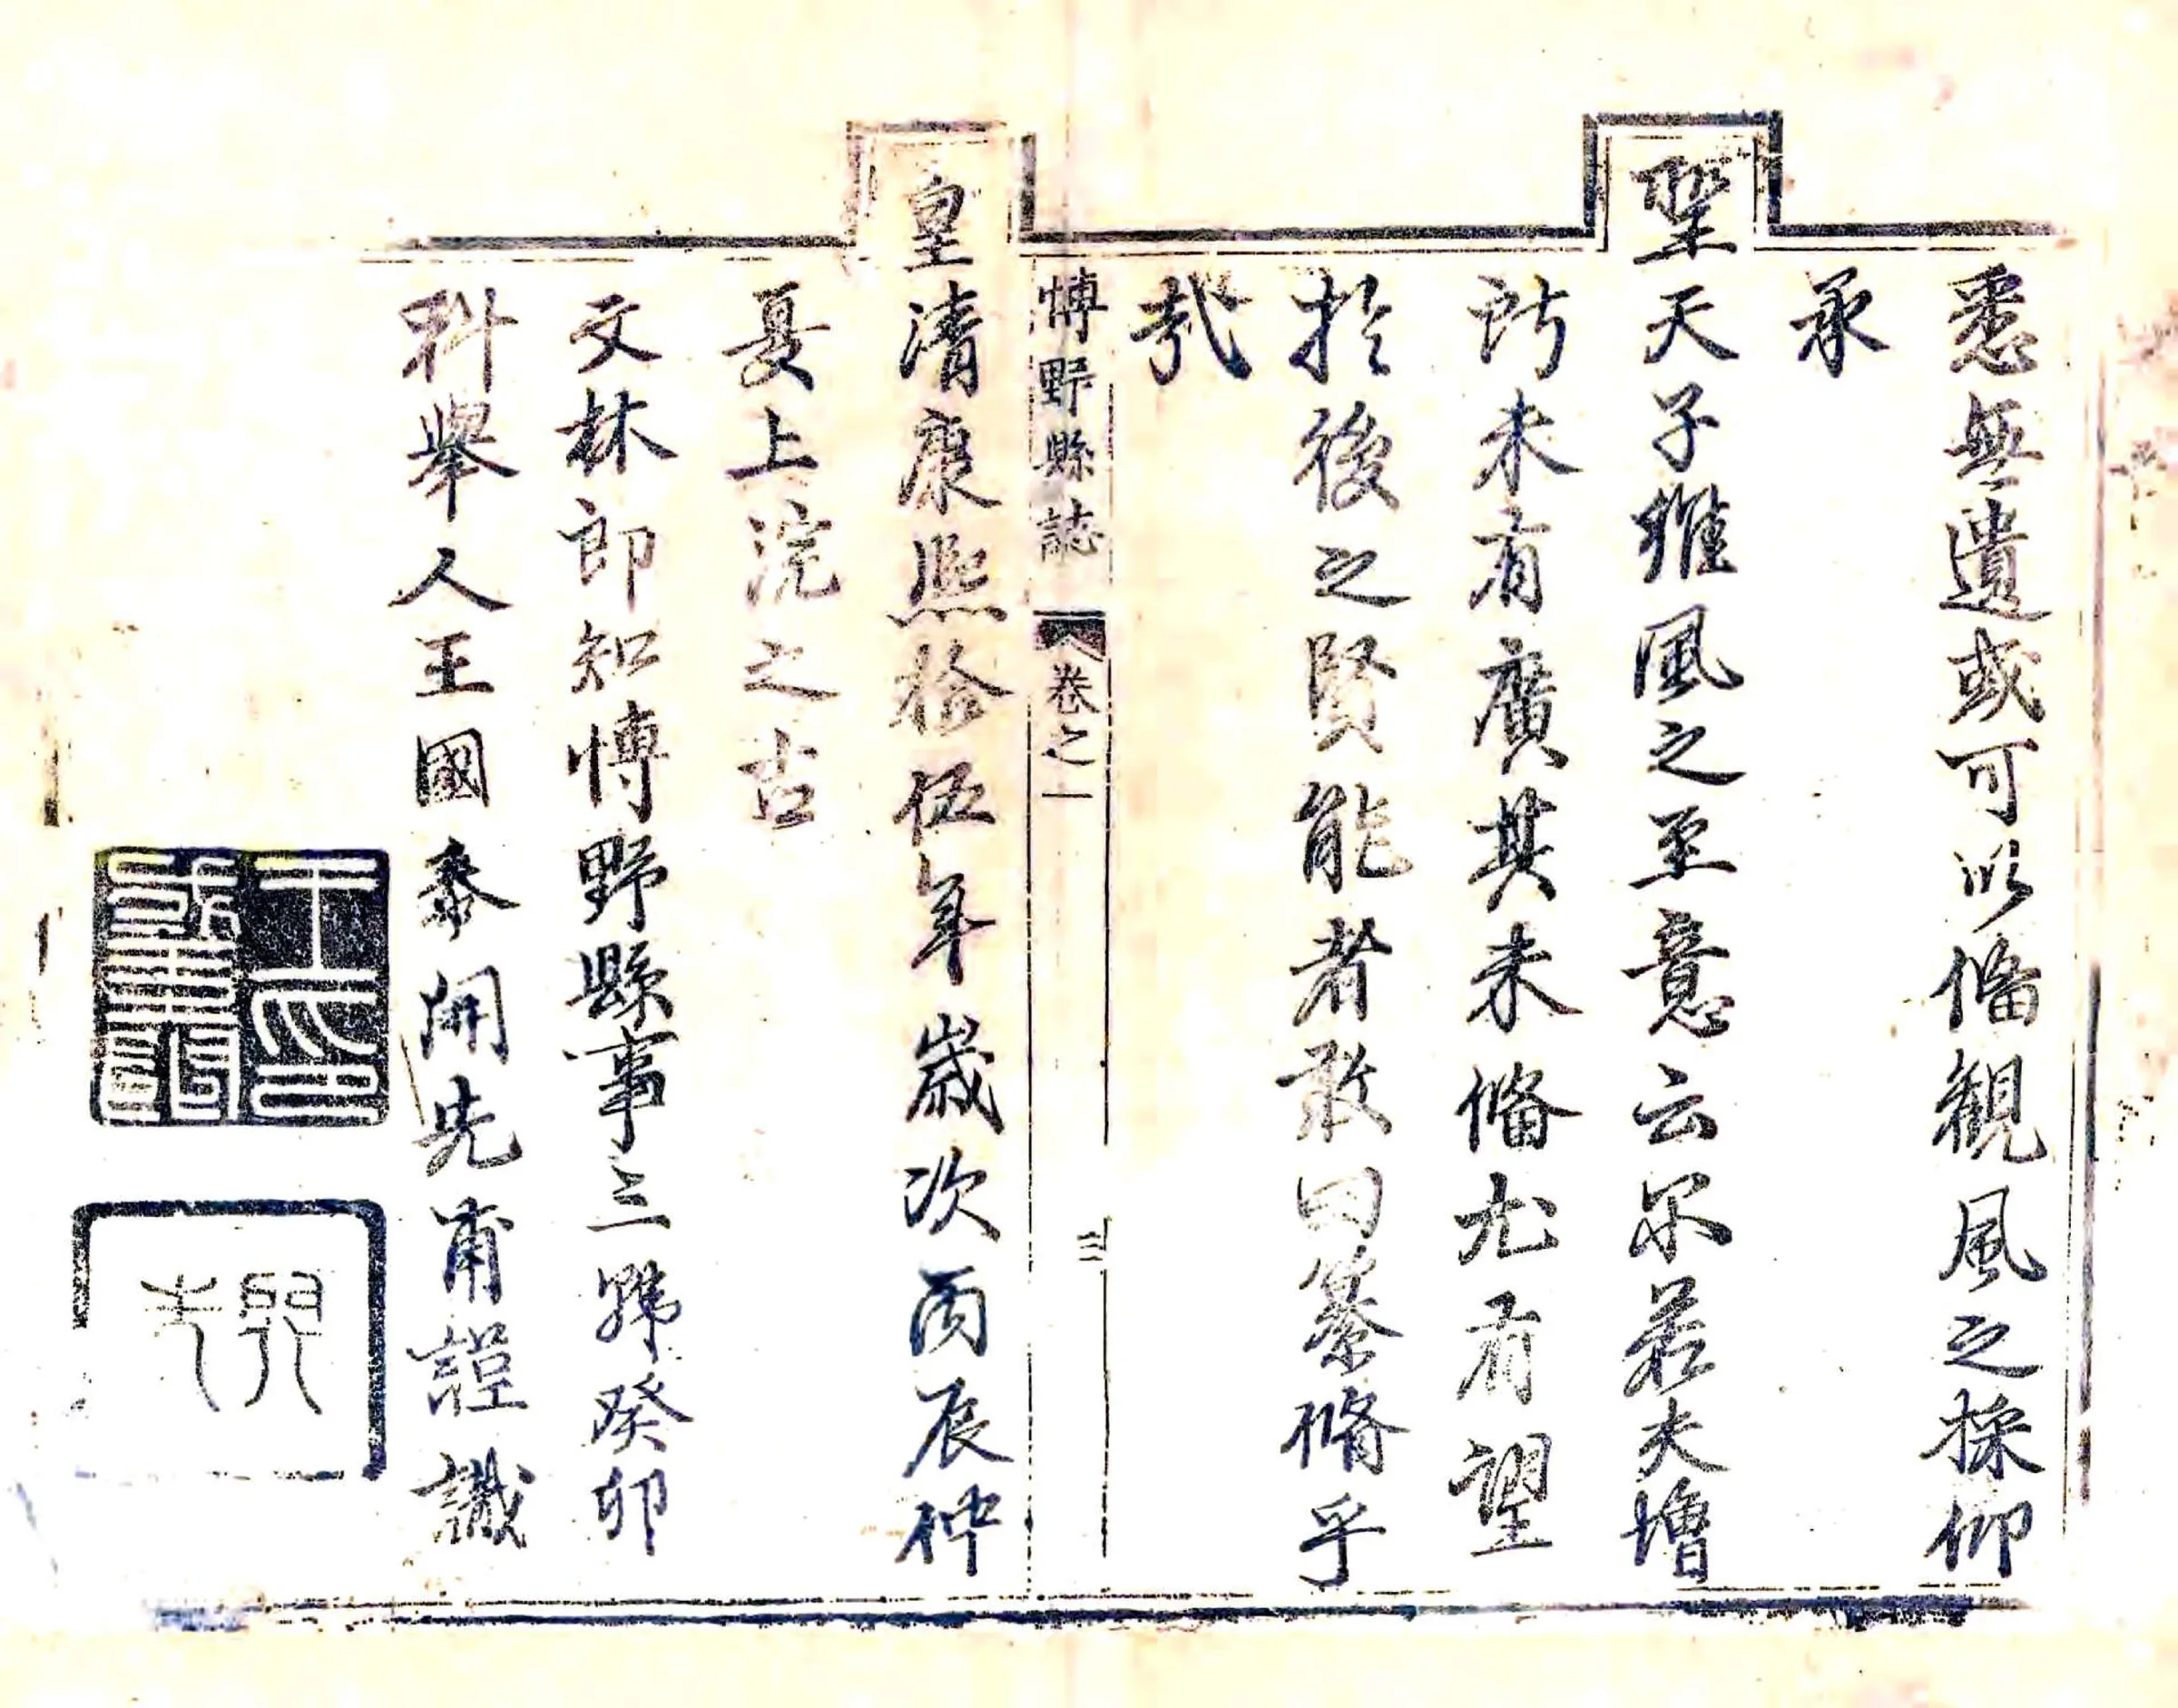 悉無遺或可以俻觀風之採仰
承
聖天子維風之至意云尔若夫增
所未有廣其未俻尤有望
於後之賢能者敢曰纂脩乎
哉
博野縣誌 卷之一 三
皇清康熙拾伍年歲次丙辰仲
夏上浣之吉
文林郎知博野縣事三韓癸卯
科舉人王國泰開先甫謹識